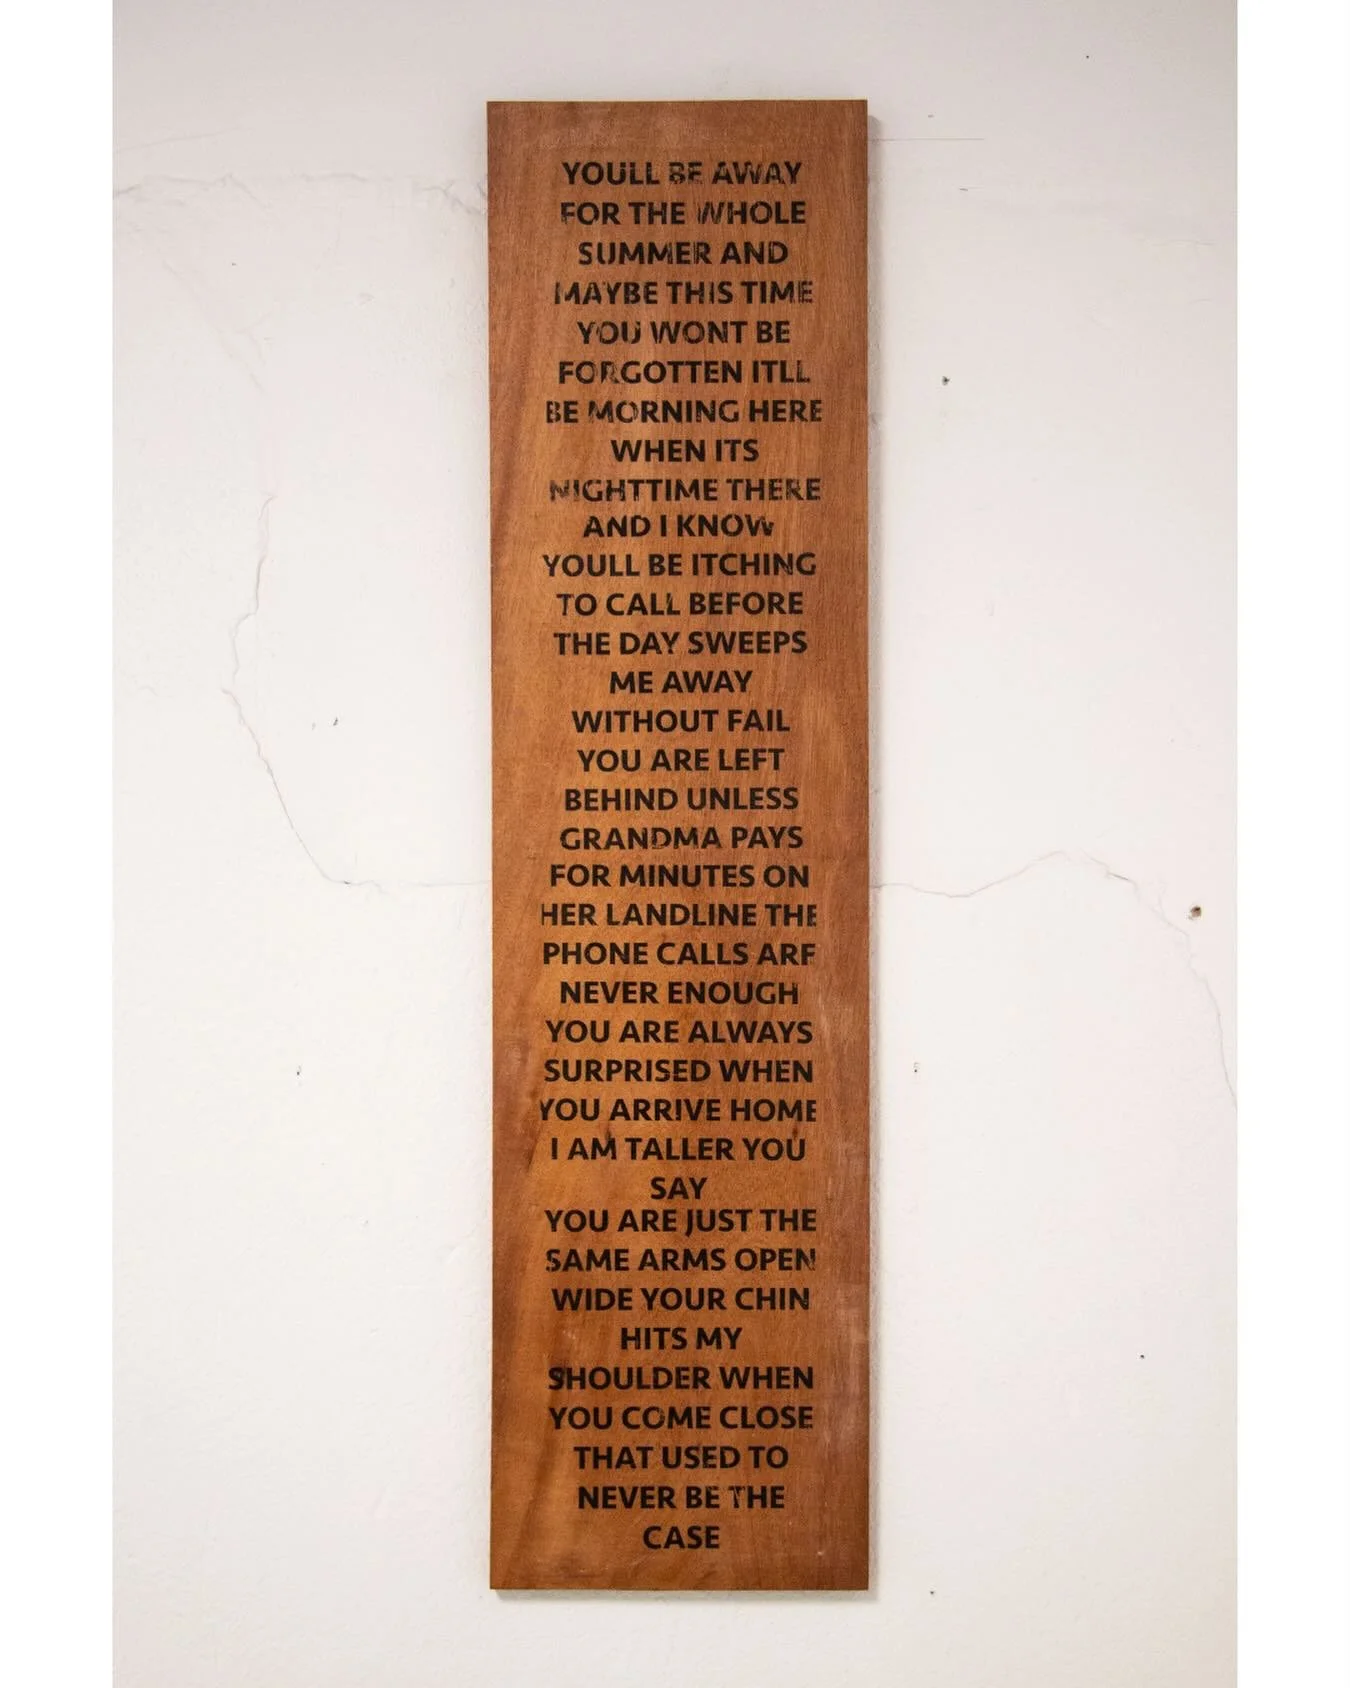 YOULL BE AWAY
FOR THE WHOLE
SUMMER AND
MAYBE THIS TIME
YOU WONT BE
FORGOTTEN ITLL
BE MORNING HERE
WHEN ITS
NIGHTTIME THERE
AND I KNOW
YOULL BE ITCHING
TO CALL BEFORE
THE DAY SWEEPS
ME AWAY
WITHOUT FAIL
YOU ARE LEFT
BEHIND UNLESS
GRANDMA PAYS
FOR MINUTES ON
HER LANDLINE THE
PHONE CALLS ARE
NEVER ENOUGH
YOU ARE ALWAYS
SURPRISED WHEN
YOU ARRIVE HOME
I AM TALLER YOU
SAY
YOU ARE JUST THE
SAME ARMS OPEN
WIDE YOUR CHIN
HITS MY
SHOULDER WHEN
YOU COME CLOSE
THAT USED TO
NEVER BE THE
CASE